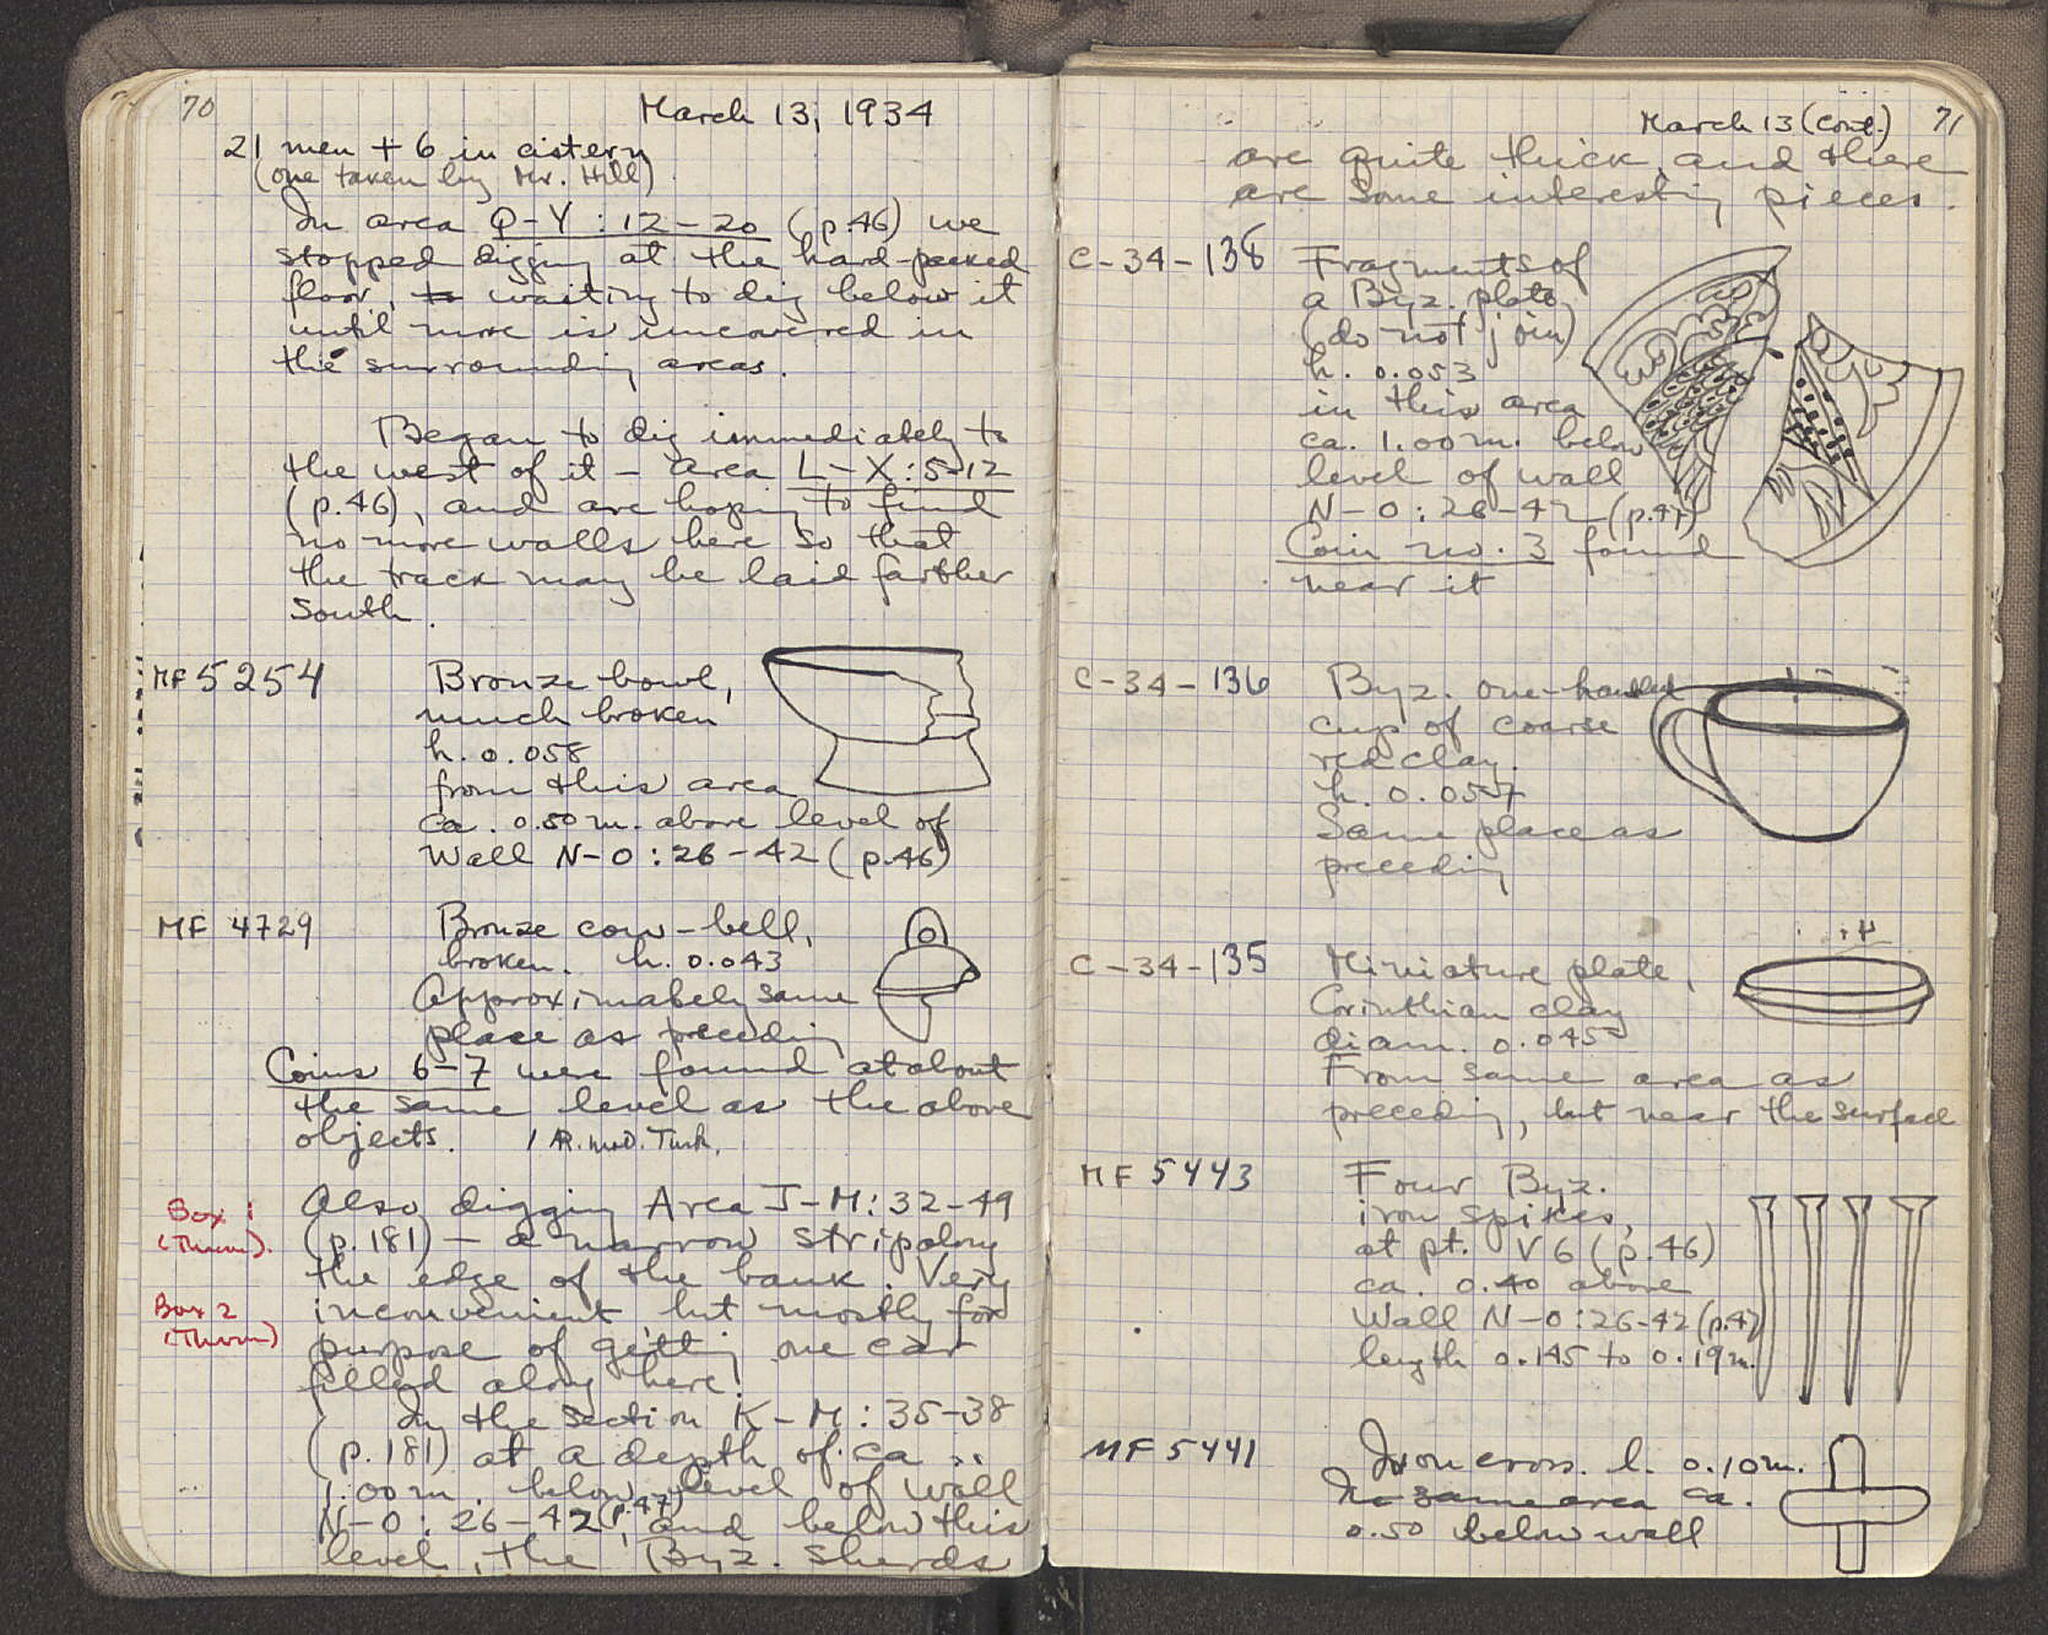 70
March 13, 1934
21 men + 6 in cistern
(one taken by Mr. Hill)
In area Q-Y : 12-20 (p.46) we
stopped digging at the hard-packed
floor, to waiting to dig below it
until more is uncovered in
the surrounding areas.
Began to dig immediately to
the west of it - area L-X:5-12
(p.46), and are hoping to find
no more walls here so that
the track may be laid farther
south.
MF 5254
Bronze bowl,
much broken
h. 0.058
from this area
ca. 0.50 m. above level of
Wall N-O : 26-42 (p.46)
MF 4729
Bronze cow-bell,
broken. h. 0.043
Approximately same
place as preceding
Coins 6-7 were found at about
the same level as the above
objects. 1 AR. mod. Turk.
Box 1
(Thrown).
Box 2
(Thrown)
Also digging Area J-M: 32-49
(p.181) - a narrow strip along
the edge of the bank. Very
inconvenient, but mostly for
purpose of getting one car
filled along here.
In the section K-M: 35-38
(p.181) at a depth of ca
1.00 m. below level of wall
N-O : 26-42 (p.47), and below this
level, the Byz. sherds
March 13 (cont.) 71
are quite thick, and there
are some interesting pieces.
C-34-138
Fragments of
a Byz. plate
(do not join)
h. 0.053
in this area
ca. 1.00 m. below
level of wall
N-O : 26-42 (p.47)
Coin no. 3 found
near it
C-34-136
Byz. one-handled
cup of coarse
red clay.
h. 0.057
Same place as
preceding
C-34-135
Miniature plate,
Corinthian clay
diam. 0.045
From same area as
preceding, but near the surface
MF 5443
Four Byz.
iron spikes,
at pt. V6 (p.46)
ca. 0.40 above
Wall N-O : 26-42 (p.47)
length 0.145 to 0.19 m.
MF 5441
Iron cross. l. 0.10 m.
In same area ca.
0.50 below wall